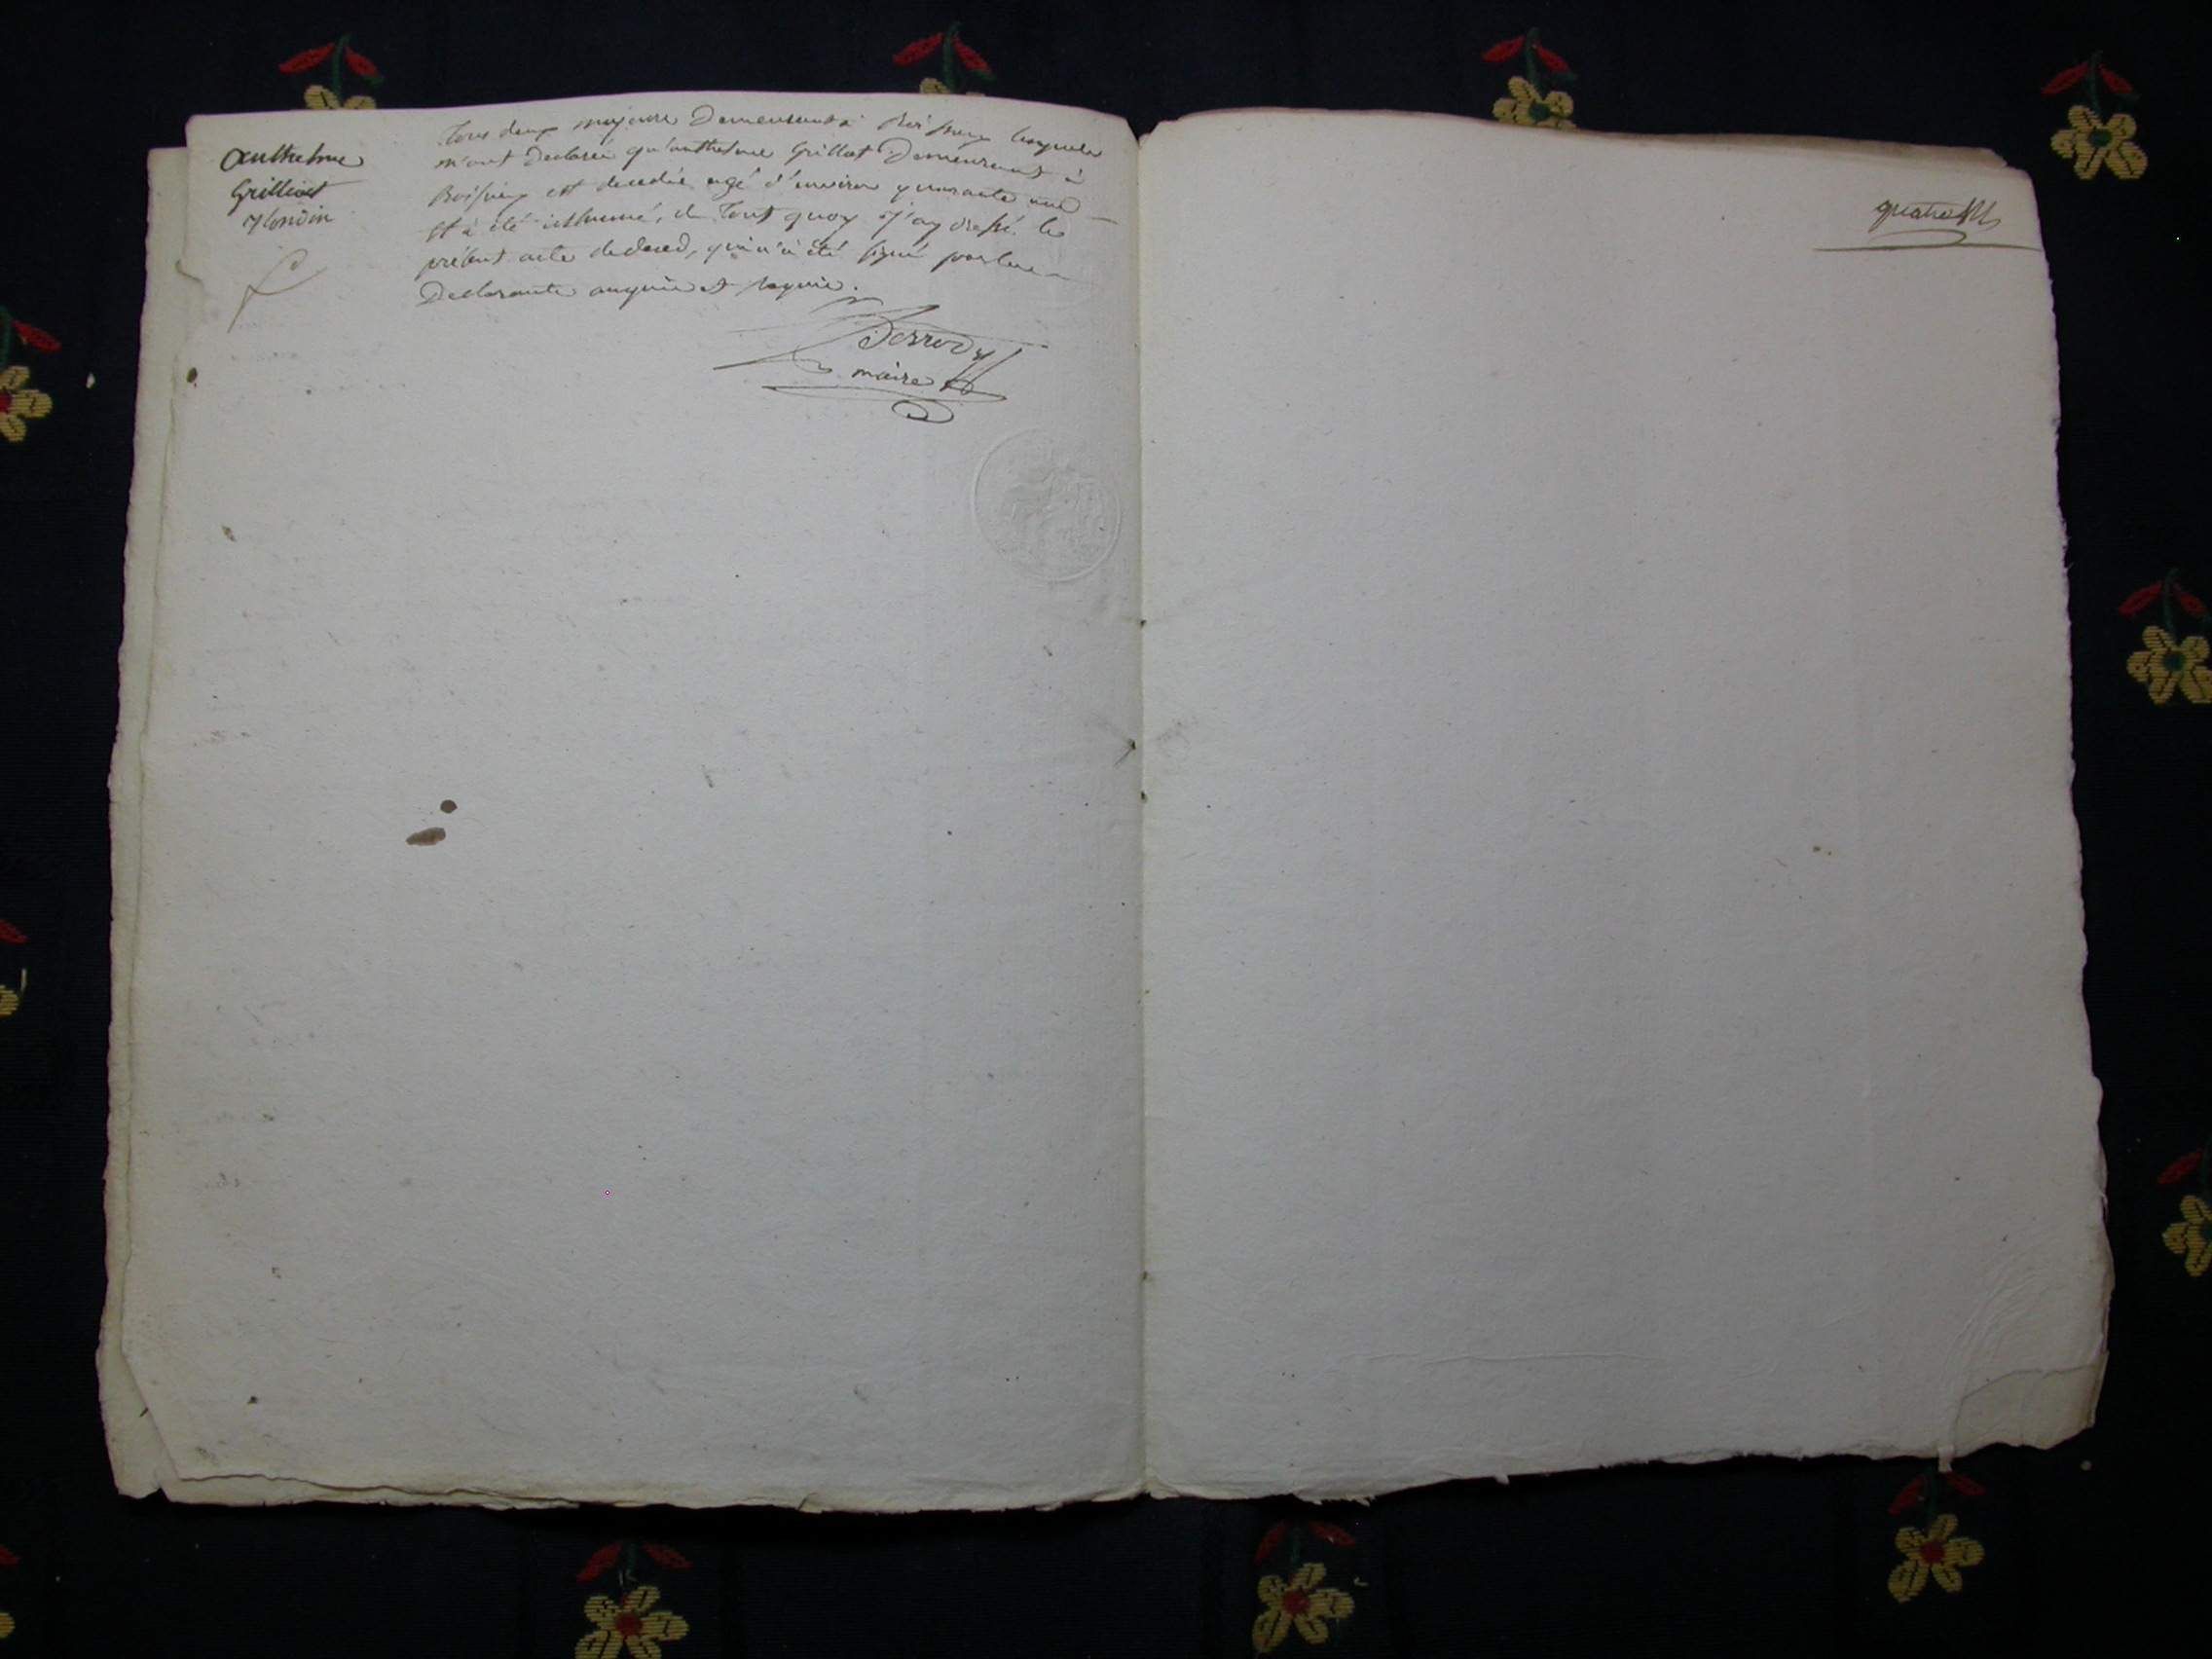 Anthelme
Grilliat
Tous deux majeurs Demeurants à Boissieu lesquels
m'ont Declaré qu'anthelme Grilliat Demeurant à
Boissieu est decedé agé d'environ quarante
et à été inhumé, de Tout quoy j'ay dressé le
présent acte de deced, qui n'à été signé par les
Declarants anquis et requis.
maire
quatre